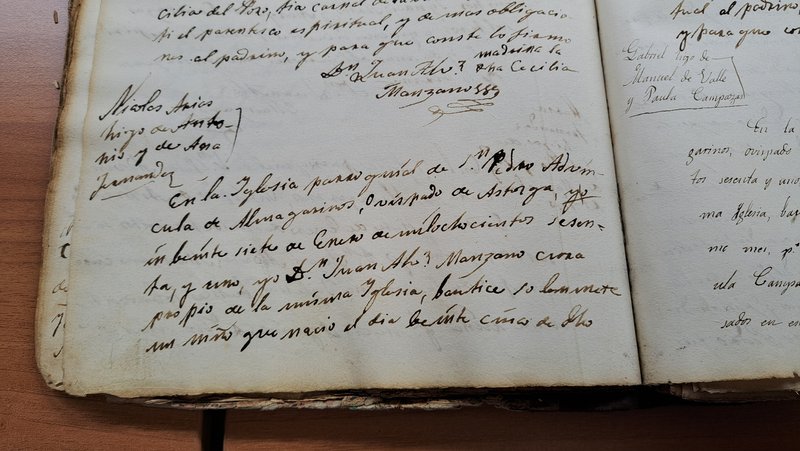 cilia del Toro, tia carnal de
ti el parentesco espiritual, y demas obligacio
nes al padrino, y para que conste lo firmo
madrina la
Dn. Juan Alvz. dha Cecilia
Manzano
Nicolas Arias
hijo de Anto-
nio, y de Ana
Fernandez
En la Yglesia parroquial de Sn. Pedro Advin-
cula de Almagarinos, Ovispado de Astorga,
in beinte siete de Enero de milochocientos sesen-
ta, y uno, yo Dn. Juan Alvz. Manzano
propio de la misma Yglesia, bautice solemnete
un niño que nacio el dia beinte cinco de dho
tual al padrino
y para que con
Gabriel hijo de
Manuel de Valle
y Paula Campazas
En la
garinos, ovispado
tos sesenta y uno
ma Yglesia, bap
me mes, p.
ula Campa
sados en es